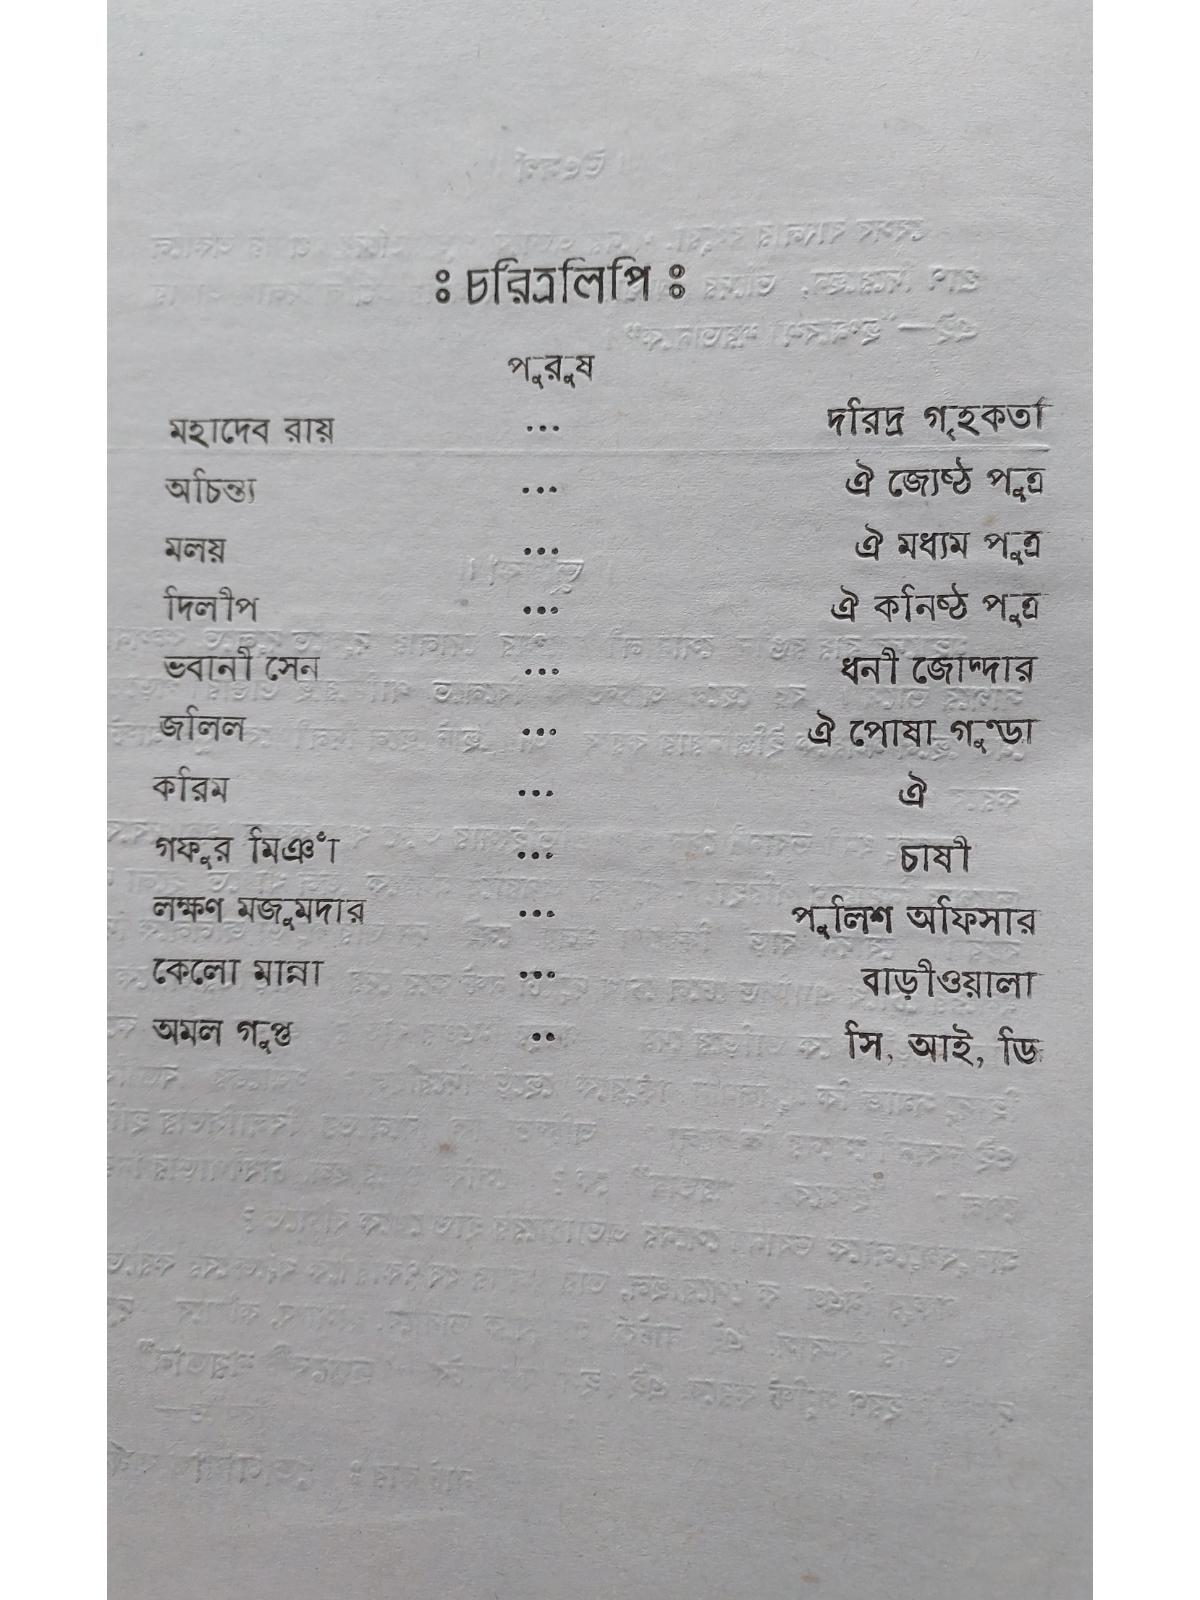 ঃ চরিত্রলিপি ঃ
পুরুষ
মহাদেব রায় ... দরিদ্র গৃহকর্তা
অচিন্ত্য ... ঐ জ্যেষ্ঠ পুত্র
মলয় ... ঐ মধ্যম পুত্র
দিলীপ ... ঐ কনিষ্ঠ পুত্র
ভবানী সেন ... ধনী জোদ্দার
জলিল ... ঐ পোষা গুণ্ডা
করিম ... ঐ
গফুর মিঞাঁ ... চাষী
লক্ষণ মজুমদার ... পুলিশ অফিসার
কেলো মান্না ... বাড়ীওয়ালা
অমল গুপ্ত .. সি, আই, ডি